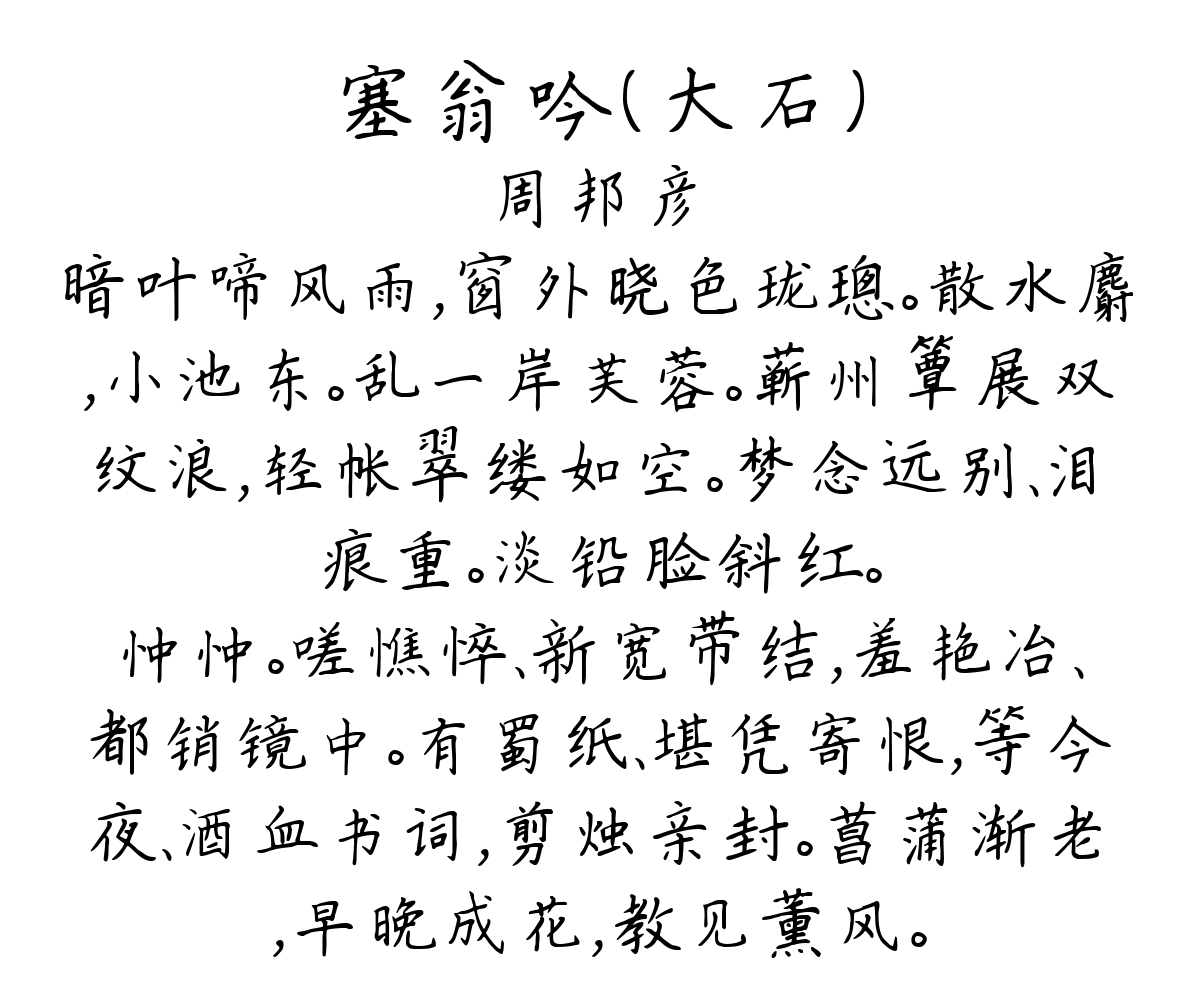 塞翁吟(大石)
周邦彦
暗叶啼风雨,窗外晓色珑璁。散水麝
,小池东。乱一岸芙蓉。蕲州簟展双
纹浪,轻帐翠缕如空。梦念远别、泪
痕重。淡铅脸斜红。
忡忡。嗟憔悴、新宽带结,羞艳冶、
都销镜中。有蜀纸、堪凭寄恨,等今
夜、洒血书词,剪烛亲封。菖蒲渐老
,早晚成花,教见薰风。